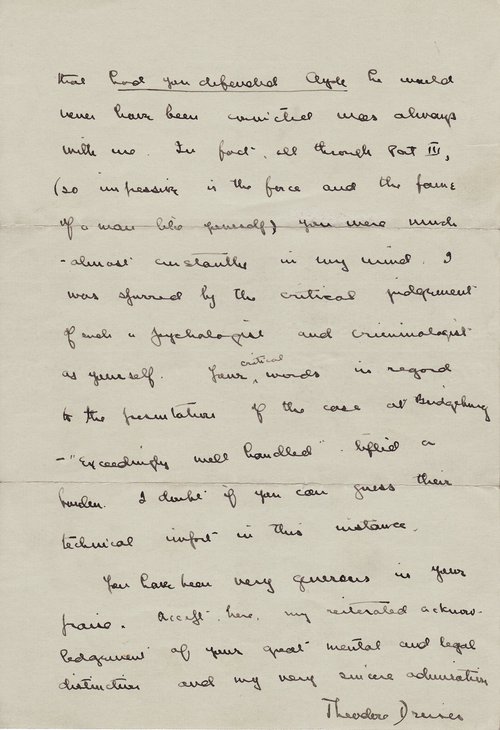 that had you defended Clyde he would
never have been convicted was always
with me. In fact, all through Part III,
(so impressive is the force and the fame
of a man like yourself) you were much
-almost constantly in my mind. I
was spurred by the critical judgement
of such a psychologist and criminologist
as yourself. Your critical words in regard
to the presentation of the case at Bridgeburg
-"exceedingly well handled" lifted a
burden. I doubt if you can guess their
technical import in this instance.
You have been very generous in your
praise. Accept, here, my reiterated acknow-
ledgement of your great mental and legal
distinction and my very sincere admiration
Theodore Dreiser